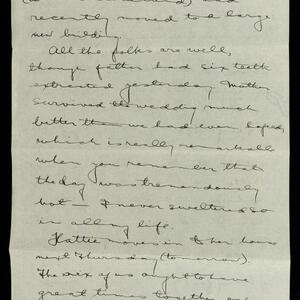 recently moved to a large
new building.
All the folks are well,
though father had six teeth
extracted yesterday. Mother
survived the wedding much
better than we had ever hoped,
which is really remarkable
when you remember that
the day was tremendously
hot — I never sweltered so
in all my life.
Hattie moves in to her house
next Thursday (tomorrow).
The six of us ought to have
great times together